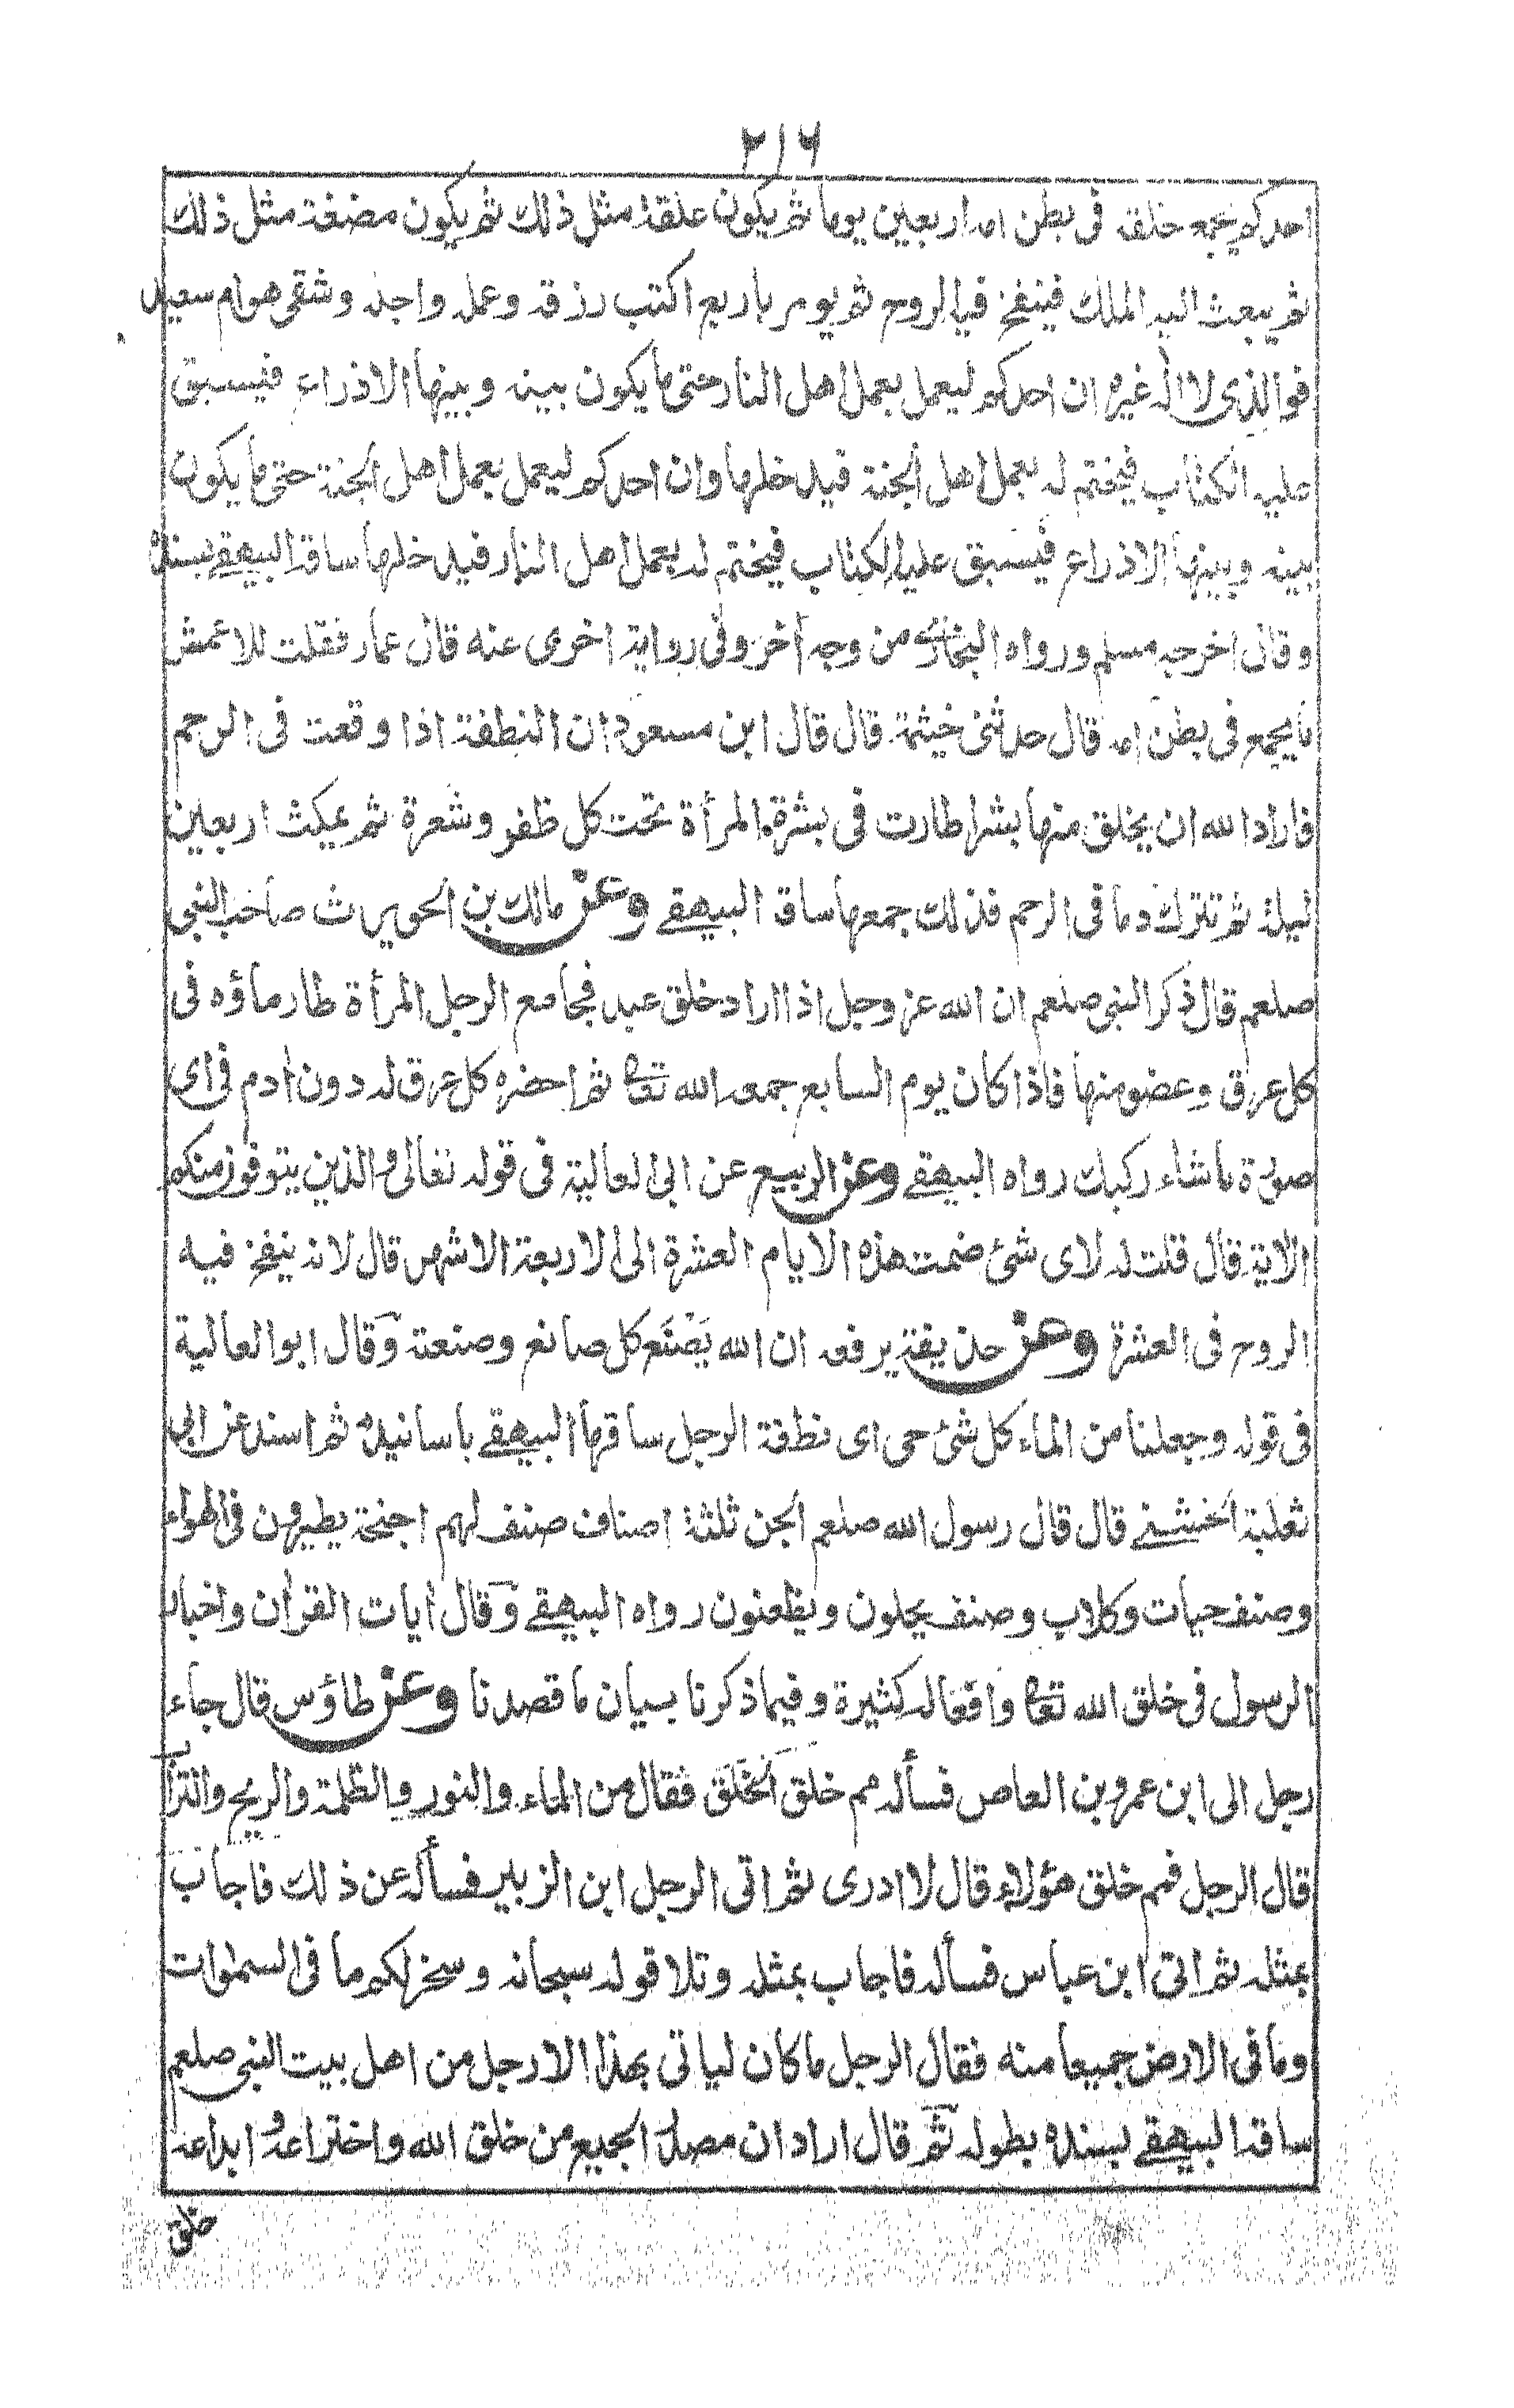 ٢١٦
احدكم يجمع خلقه فى بطن امه اربعين يوما ثم يكون علقة مثل ذلك ثم يكون مضغة مثل ذلك
ثم يبعث اليه الملك فينفخ فيه الروح ثم يومر باربع اكتب رزقه وعمله واجله وشقى هو ام سعيد
فوالذى لا اله غيره ان احدكم ليعمل بعمل اهل النار حتى ما يكون بينه وبينها الا ذراع فيسبق
عليه الكتاب فيختم له بعمل اهل الجنة فيدخلها وان احدكم ليعمل بعمل اهل الجنة حتى ما يكون
بينه وبينها الا ذراع فيسبق عليه الكتاب فيختم له بعمل اهل النار فيدخلها ساقه البيهقے بسنده
وقال اخرجه مسلم ورواه البخارے من وجه آخر وفى رواية اخرى عنه قال عمار فقلت للاعمش
ما يجمع فى بطن امه قال حدثنى خيثمة قال قال ابن مسعود ان النطفة اذا وقعت فى الرحم
فاراد الله ان يخلق منها بشرا طارت فى بشرة المرأة تحت كل ظفر وشعرة ثم يمكث اربعين
ليلة ثم تترك دما فى الرحم فذلك جمعها ساق البيهقے وعن مالك بن الحويرث صاحب النبى
صلعم قال ذكر النبى صلعم ان الله عز وجل اذا اراد خلق عبد فجامع الرجل المرأة طار ماؤه فى
كل عرق وعضو منها فاذا كان يوم السابع جمعه الله تعا ثم احضره كل عرق له دون ادم فى اى
صورة ما شاء ركبك رواه البيهقے وعن الربيع عن ابى العالية فى قوله تعالى والذين يتوفون منكم
الاية قال قلت له لاى شئ ضمت هذه الايام العشرة الى الاربعة الاشهر قال لانه ينفخ فيه
الروح فى العشرة وعن حذيفة يرفعه ان الله يَصْنَع كل صانع وصنعته وقال ابو العالية
فى قوله وجعلنا من الماء كل شئ حى اى نطفة الرجل ساقها البيهقے باسانيده ثم اسند عن ابى
ثعلبة الخشنے قال قال رسول الله صلعم الجن ثلثة اصناف صنف لهم اجنحة يطيرون فى الهواء
وصنف حيات وكلاب وصنف يحلون ويظعنون رواه البيهقے وقال آيات القرآن واخبار
الرسول فى خلق الله تعا وافعاله كثيرة وفيما ذكرنا بيان ما قصدنا وعن طاؤس قال جاء
رجل الى ابن عمرو بن العاص فسأله مم خلق الخلق فقال من الماء والنور والظلمة والريح والترا
قال الرجل فمم خلق هؤلاء قال لا ادرى ثم اتى الرجل ابن الزبير فسأله عن ذلك فاجاب
بمثله ثم اتى ابن عباس فسأله فاجاب بمثله وتلا قوله سبحانه وسخر لكم ما فى السموات
وما فى الارض جميعا منه فقال الرجل ما كان لياتى بهذا الا رجل من اهل بيت النبى صلعم
ساقه البيهقے بسنده بطوله ثم قال اراد ان مصدر الجميع من خلق الله واختراعه وابداعه
خلق